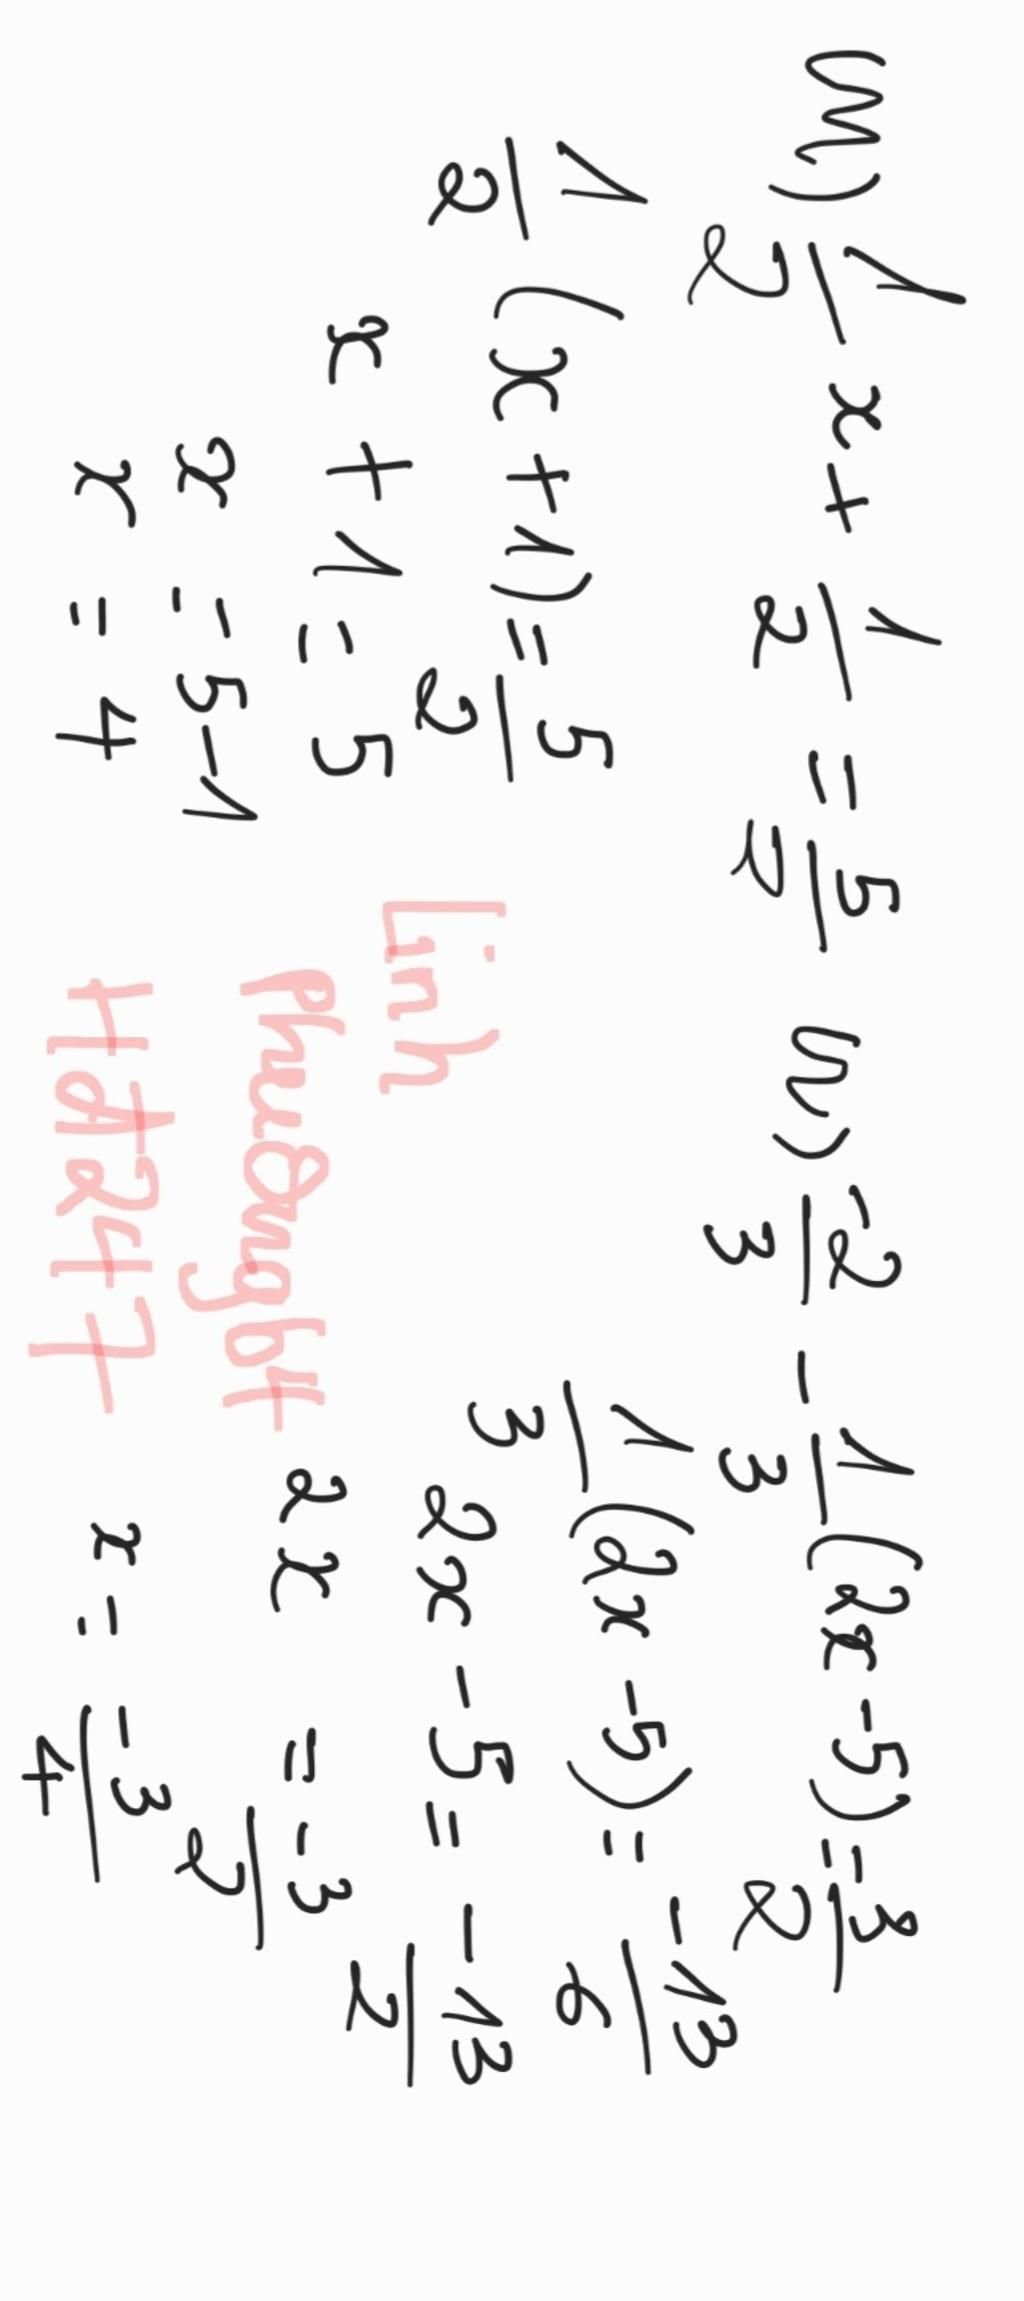 m) 1/2 x + 1/2 = 5/2
1/2 (x + 1) = 5/2
x + 1 = 5
x = 5 - 1
x = 4
n) -2/3 - 1/3 (2x - 5) = 3/2
1/3 (2x - 5) = -13/6
2x - 5 = -13/2
2x = -3/2
x = -3/4
Linh
Phuongb4
Hđ247